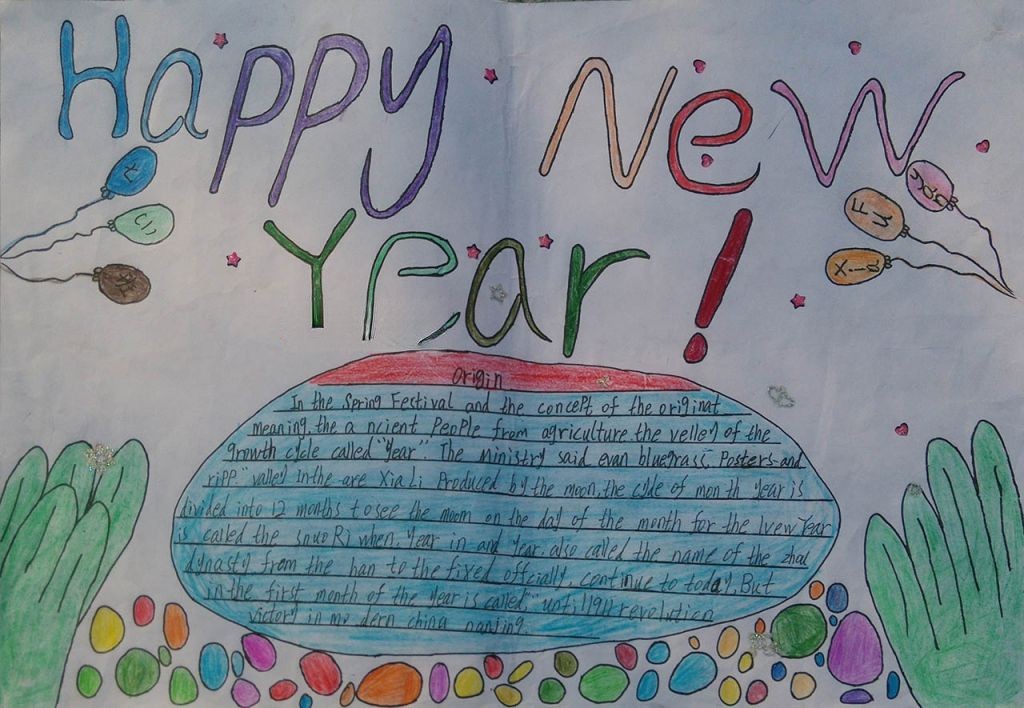 Happy New
Year!
Fu
Xia
Origin
In the Spring Festival and the concept of the originat
meaning, the a ncient People from agriculture the velley of the
growth cycle called "year". The ministry said evan bluegrass. Posters and
ripp" valley In the are Xia Li Produced by the moon, the cycle of mon th year is
divided into 12 months to see the moom on the day of the month for the
is called the snuo Ri when, year in and year. also called the name of the zhou
dynasty from the han to the fixed offcially, continue to today, But
in the first month of the year is called, "until 1911 revolution
victory in mo dern china nanjing.